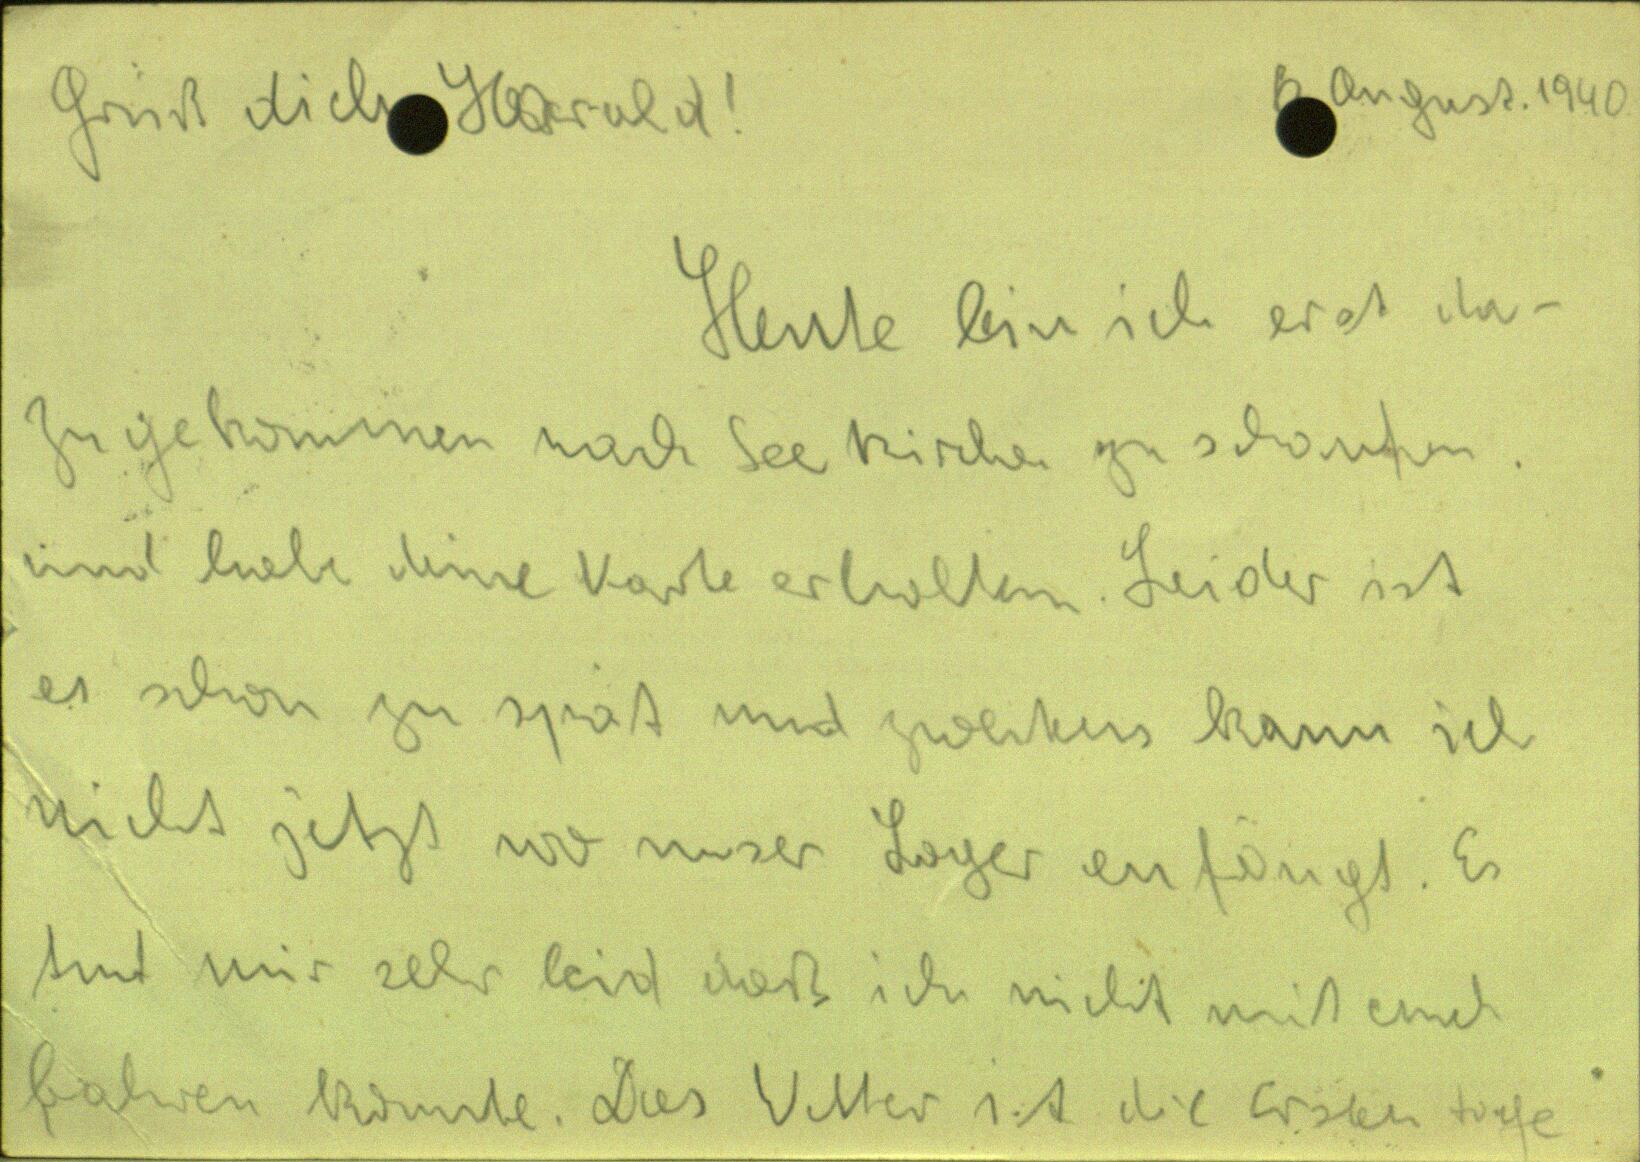 Grüß dich Harald! 6. August. 1940
Heute bin ich erst da-
zugekommen nach Seekirchen zu schaufen.
und habe deine Karte erhalten. Leider ist
es schon zu spät und zweitens kann ich
nicht jetzt wo unser Lager anfängt. Es
tut mir sehr leid daß ich nicht mit euch
fahren könnte. Das Wetter ist die Ersten tage